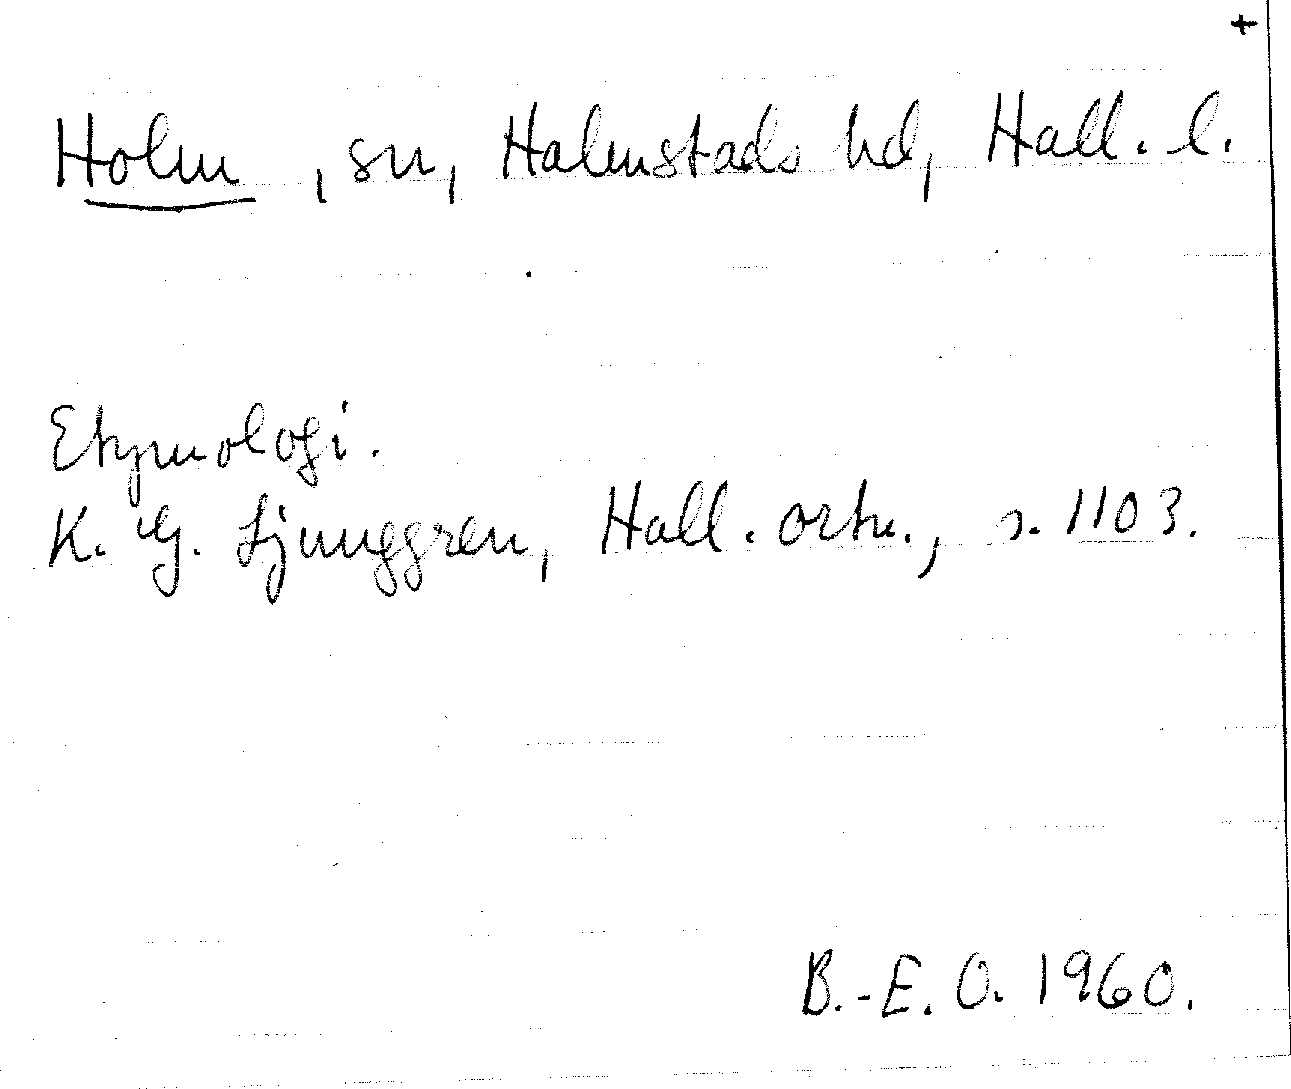 +
Holm, sn, Halmstads hd, Hall. l.
Etymologi.
K. G. Ljunggren, Hall. ortn., s. 1103.
B.-E. O. 1960.